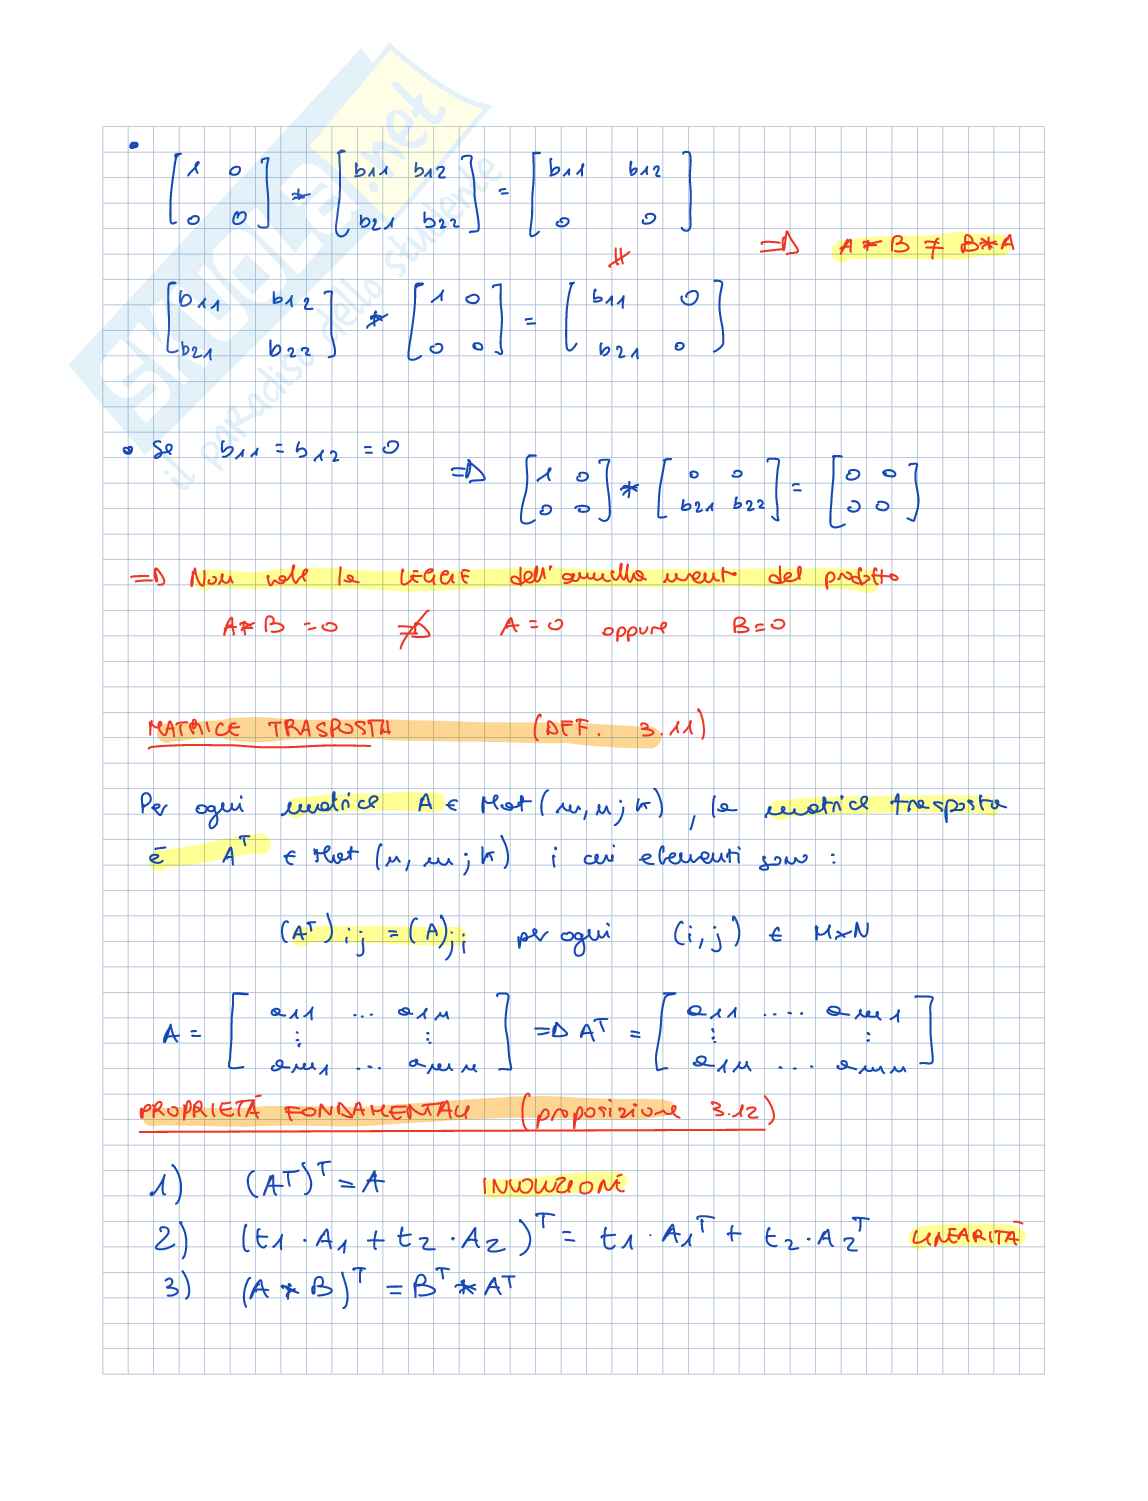 • [1 0 / 0 0] * [b11 b12 / b21 b22] = [b11 b12 / 0 0]
≠ => A * B ≠ B * A
[b11 b12 / b21 b22] * [1 0 / 0 0] = [b11 0 / b21 0]
• Se b11 = b12 = 0 => [1 0 / 0 0] * [0 0 / b21 b22] = [0 0 / 0 0]
=> Non vale la LEGGE dell'annullamento del prodotto
A * B = 0 ⇏ A = 0 oppure B = 0
MATRICE TRASPOSTA (DEF. 3.11)
Per ogni matrice A ∈ Mat (m, n; K), la matrice trasposta
è Aᵀ ∈ Mat (n, m; K) i cui elementi sono :
(Aᵀ)ij = (A)ji per ogni (i, j) ∈ M×N
A = [a11 ... a1n / ⋮ ⋮ / am1 ... amn] => Aᵀ = [a11 .... am1 / ⋮ ⋮ / a1n ... amn]
PROPRIETÀ FONDAMENTALI (proposizione 3.12)
1) (Aᵀ)ᵀ = A INVOLUZIONE
2) (t1 · A1 + t2 · A2)ᵀ = t1 · A1ᵀ + t2 · A2ᵀ LINEARITÀ
3) (A * B)ᵀ = Bᵀ * Aᵀ
SKUOLA.net
il paradiso dello studente